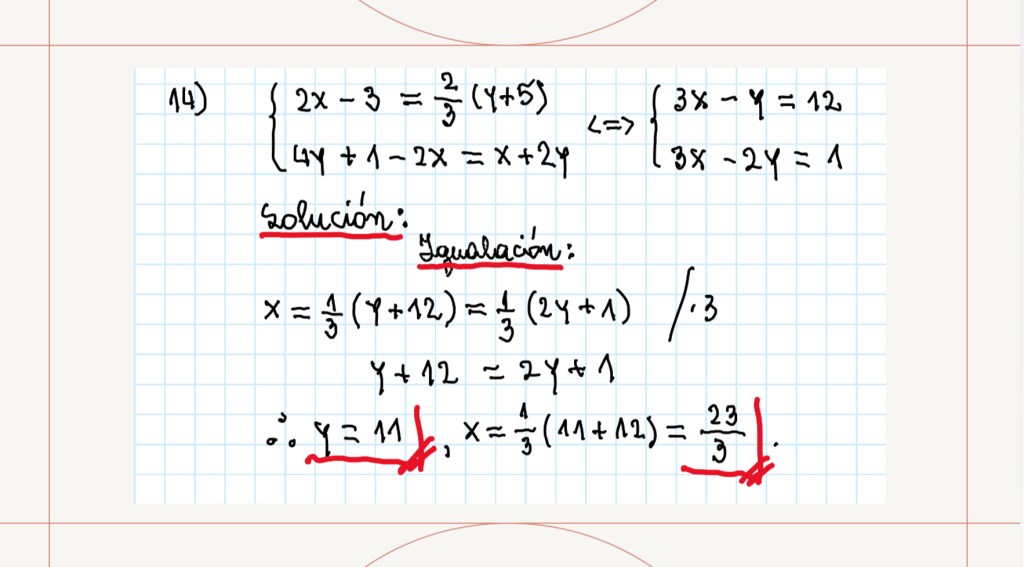 14) { 2x - 3 = 2/3 (y+5) <=> { 3x - y = 12
4y + 1 - 2x = x + 2y 3x - 2y = 1
Solución:
Igualación:
x = 1/3 (y+12) = 1/3 (2y+1) / ·3
y + 12 = 2y + 1
∴ y = 11, x = 1/3 (11+12) = 23/3.